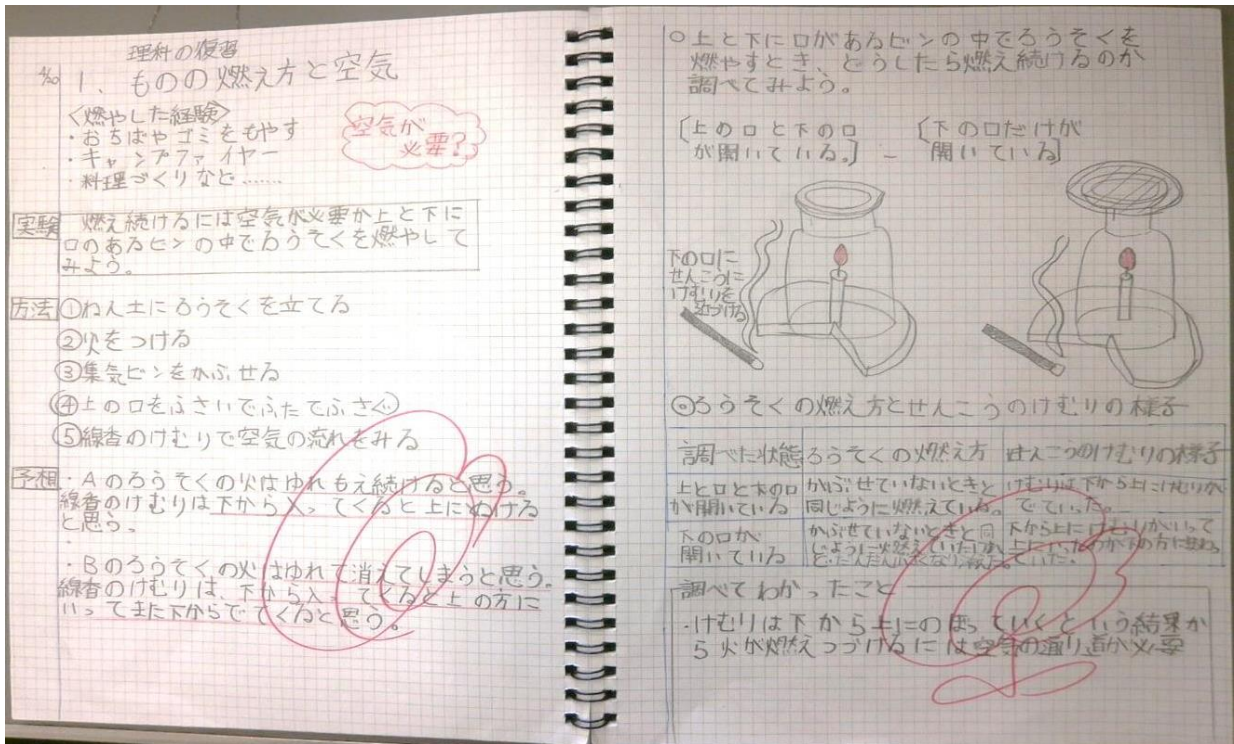 理科の復習
4/20
1、ものの燃え方と空気
<燃やした経験>
・おちばやゴミをもやす
・キャンプファイヤー
・料理づくりなど……
空気が
必要?
実験
燃え続けるには空気が必要か上と下に
口のあるビンの中でろうそくを燃やして
みよう。
方法
①ねん土にろうそくを立てる
②火をつける
③集気ビンをかぶせる
④上の口をふさいでふたでふさぐ
⑤線香のけむりで空気の流れをみる
予想
・Aのろうそくの火はゆれもえ続けると思う。
線香のけむりは下から入ってくると上にぬける
と思う。
・Bのろうそくの火はゆれて消えてしまうと思う。
線香のけむりは、下から入ってくると上の方に
いってまた下からでてくると思う。
○上と下に口があるビンの中でろうそくを
燃やすとき、どうしたら燃え続けるのか
調べてみよう。
[上の口と下の口
が開いている。]
[下の口だけが
開いている]
下の口に
せんこうに
けむりを
近づける
◎ろうそくの燃え方とせんこうのけむりの様子
調べた状態 ろうそくの燃え方 せんこうのけむりの様子
上と口と下の口 かぶせていないときと けむりは下から上にけむりが
が開いている 同じように燃えている。 でていった。
下の口が かぶせていないときと同 下から上にけむりがいって
開いている じように燃えていた
調べてわかったこと
・けむりは下から上にのぼっていくという結果か
ら火が燃えつづけるには空気の通り道が必要